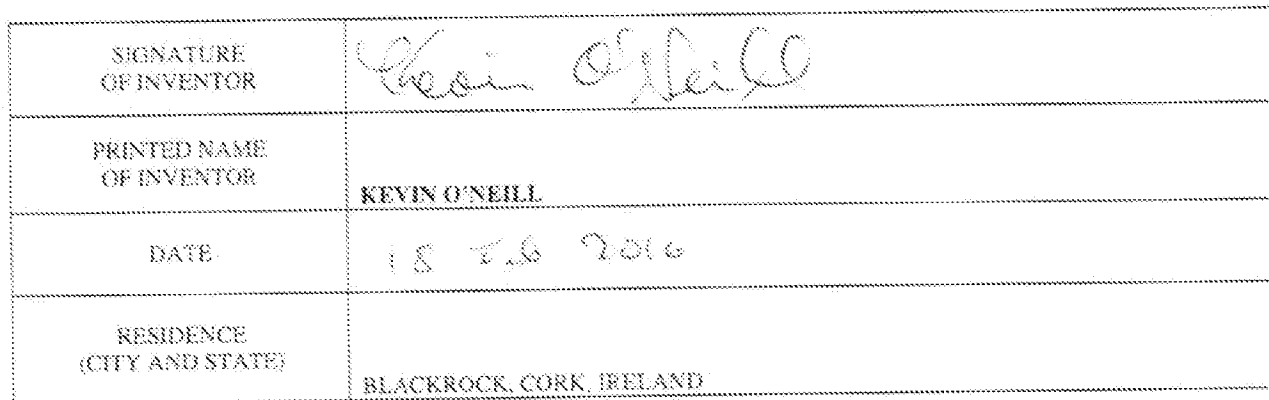 SIGNATURE
OF INVENTOR
Kevin O'Neill
PRINTED NAME
OF INVENTOR
KEVIN O'NEILL
DATE
18 Feb 2016
RESIDENCE
(CITY AND STATE)
BLACKROCK, CORK, IRELAND